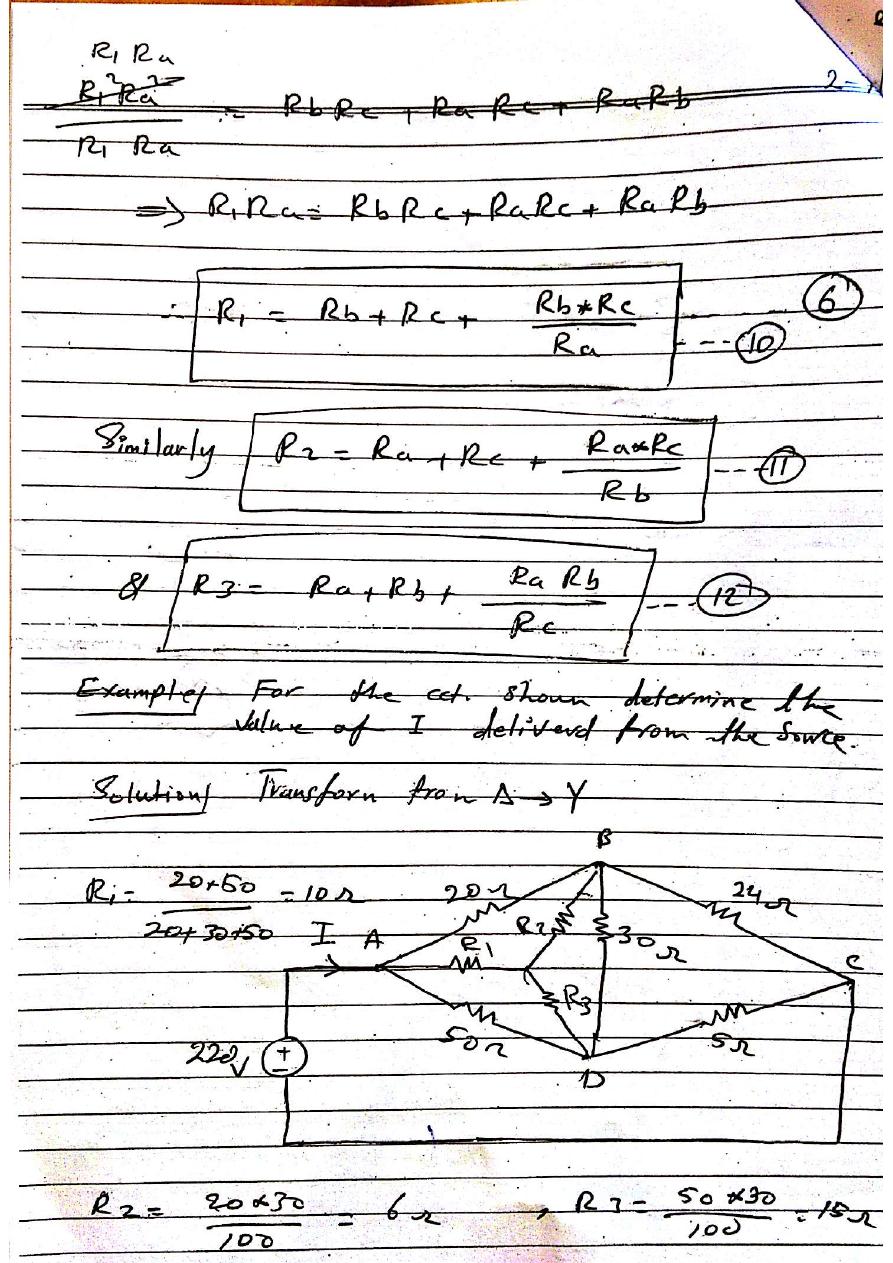 R1 Ra
R1²Ra² / R1 Ra = RbRc + RaRc + RaRb
⇒ R1Ra = RbRc + RaRc + RaRb
∴ R1 = Rb + Rc + Rb*Rc / Ra --- ⑩ ⑥
Similarly R2 = Ra + Rc + Ra*Rc / Rb --- ⑪
& R3 = Ra + Rb + Ra Rb / Rc --- ⑫
Example/ For the cct. shown determine the
value of I deliverd from the source.
Solution/ Transform from Δ → Y
B
R1 = 20*50 / 20+30+50 = 10Ω
20Ω
24Ω
I A
R1
R2
30Ω
C
R3
50Ω
5Ω
220V
+
D
R2 = 20*30 / 100 = 6Ω , R3 = 50*30 / 100 = 15Ω